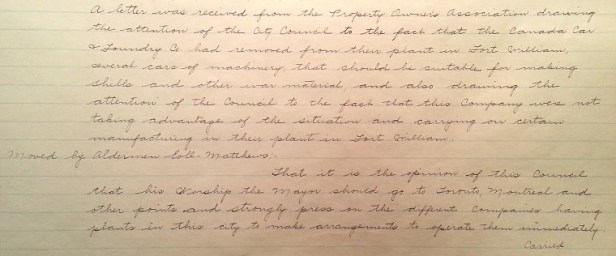 A letter was received from the Property Owners Association drawing
the attention of the City Council to the fact that the Canada Car
& Foundry Co had removed from their plant in Fort William,
several cars of machinery, that should be suitable for making
shells and other war material, and also drawing the
attention of the Council to the fact that this Company were not
taking advantage of the situation and carrying on certain
manufacturing in their plant in Fort William.
Moved by Aldermen Matthews:-
That it is the opinion of this Council
that his Worship the Mayor should go to Toronto, Montreal and
other points and strongly press on the different Companies having
plants in this city to make arrangements to operate them immediately
Carried